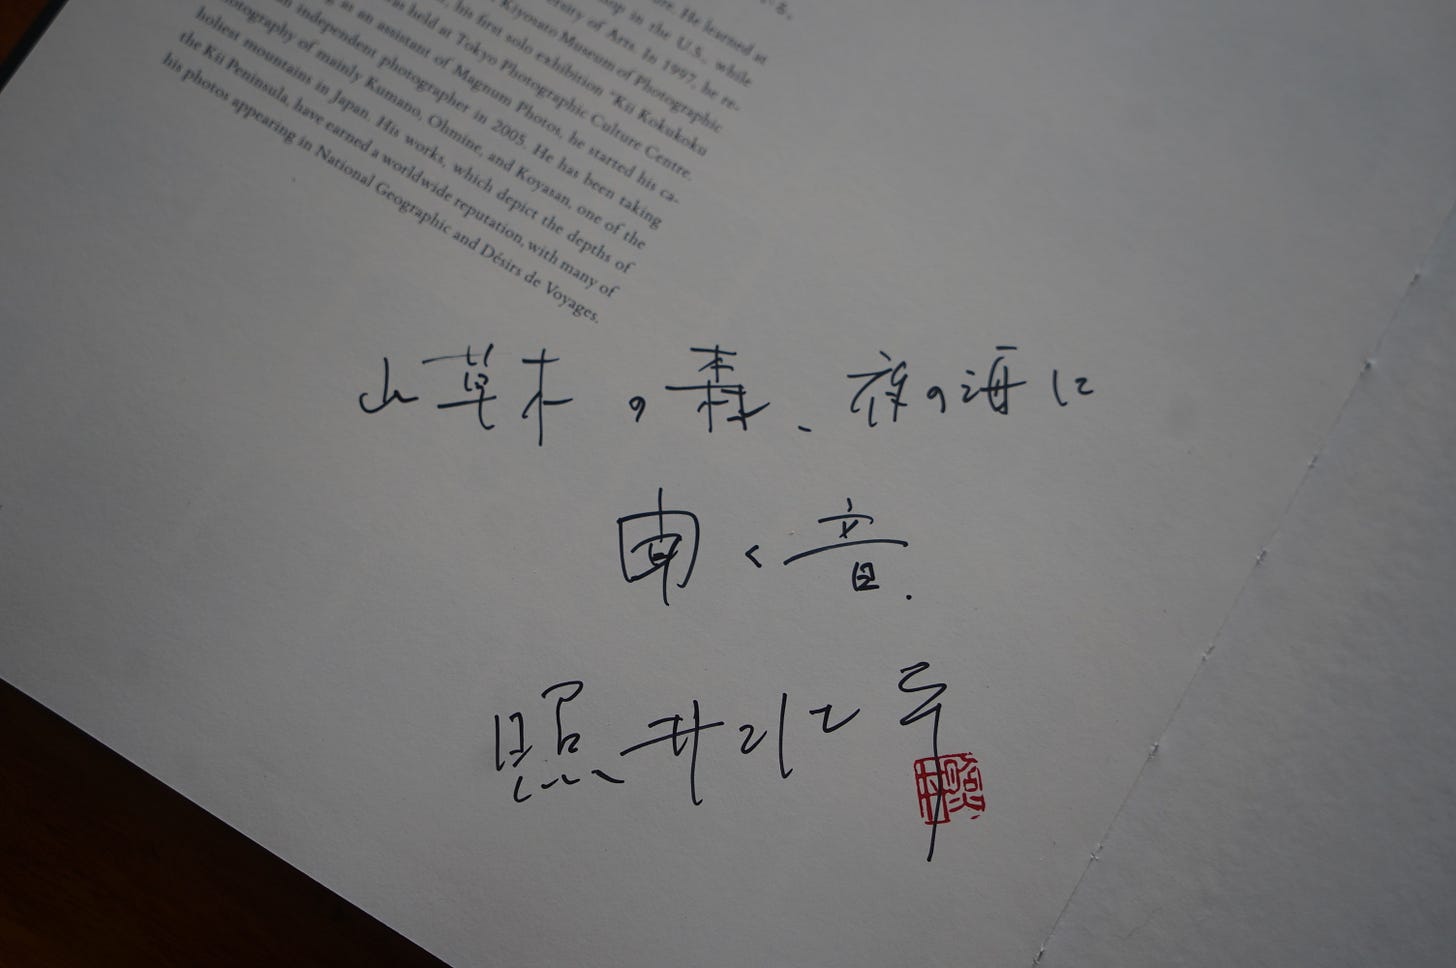 He learned at
in the U.S., while
of Arts. In 1997, he re-
Kiyosato Museum of Photographic
his first solo exhibition "Kii Kokukoku
held at Tokyo Photographic Culture Centre.
as an assistant of Magnum Photos, he started his ca-
an independent photographer in 2005. He has been taking
of mainly Kumano, Ohmine, and Koyasan, one of the
holiest mountains in Japan. His works, which depict the depths of
the Kii Peninsula, have earned a worldwide reputation, with many of
his photos appearing in National Geographic and Désirs de Voyages.
山草木の森、夜の海に
聞く音.
照井壮平